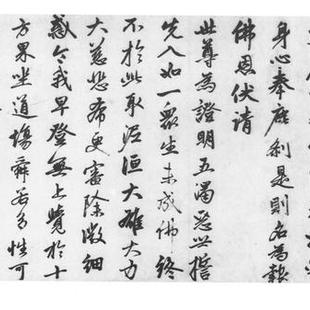 身心奉塵刹是則名為報
佛恩伏請
世尊為證明五濁惡世誓
先入如一眾生未成佛終
不於此取泥洹大雄大力
大慈悲希更審除微細
惑令我早登無上覺於十
方界坐道場舜若多性可